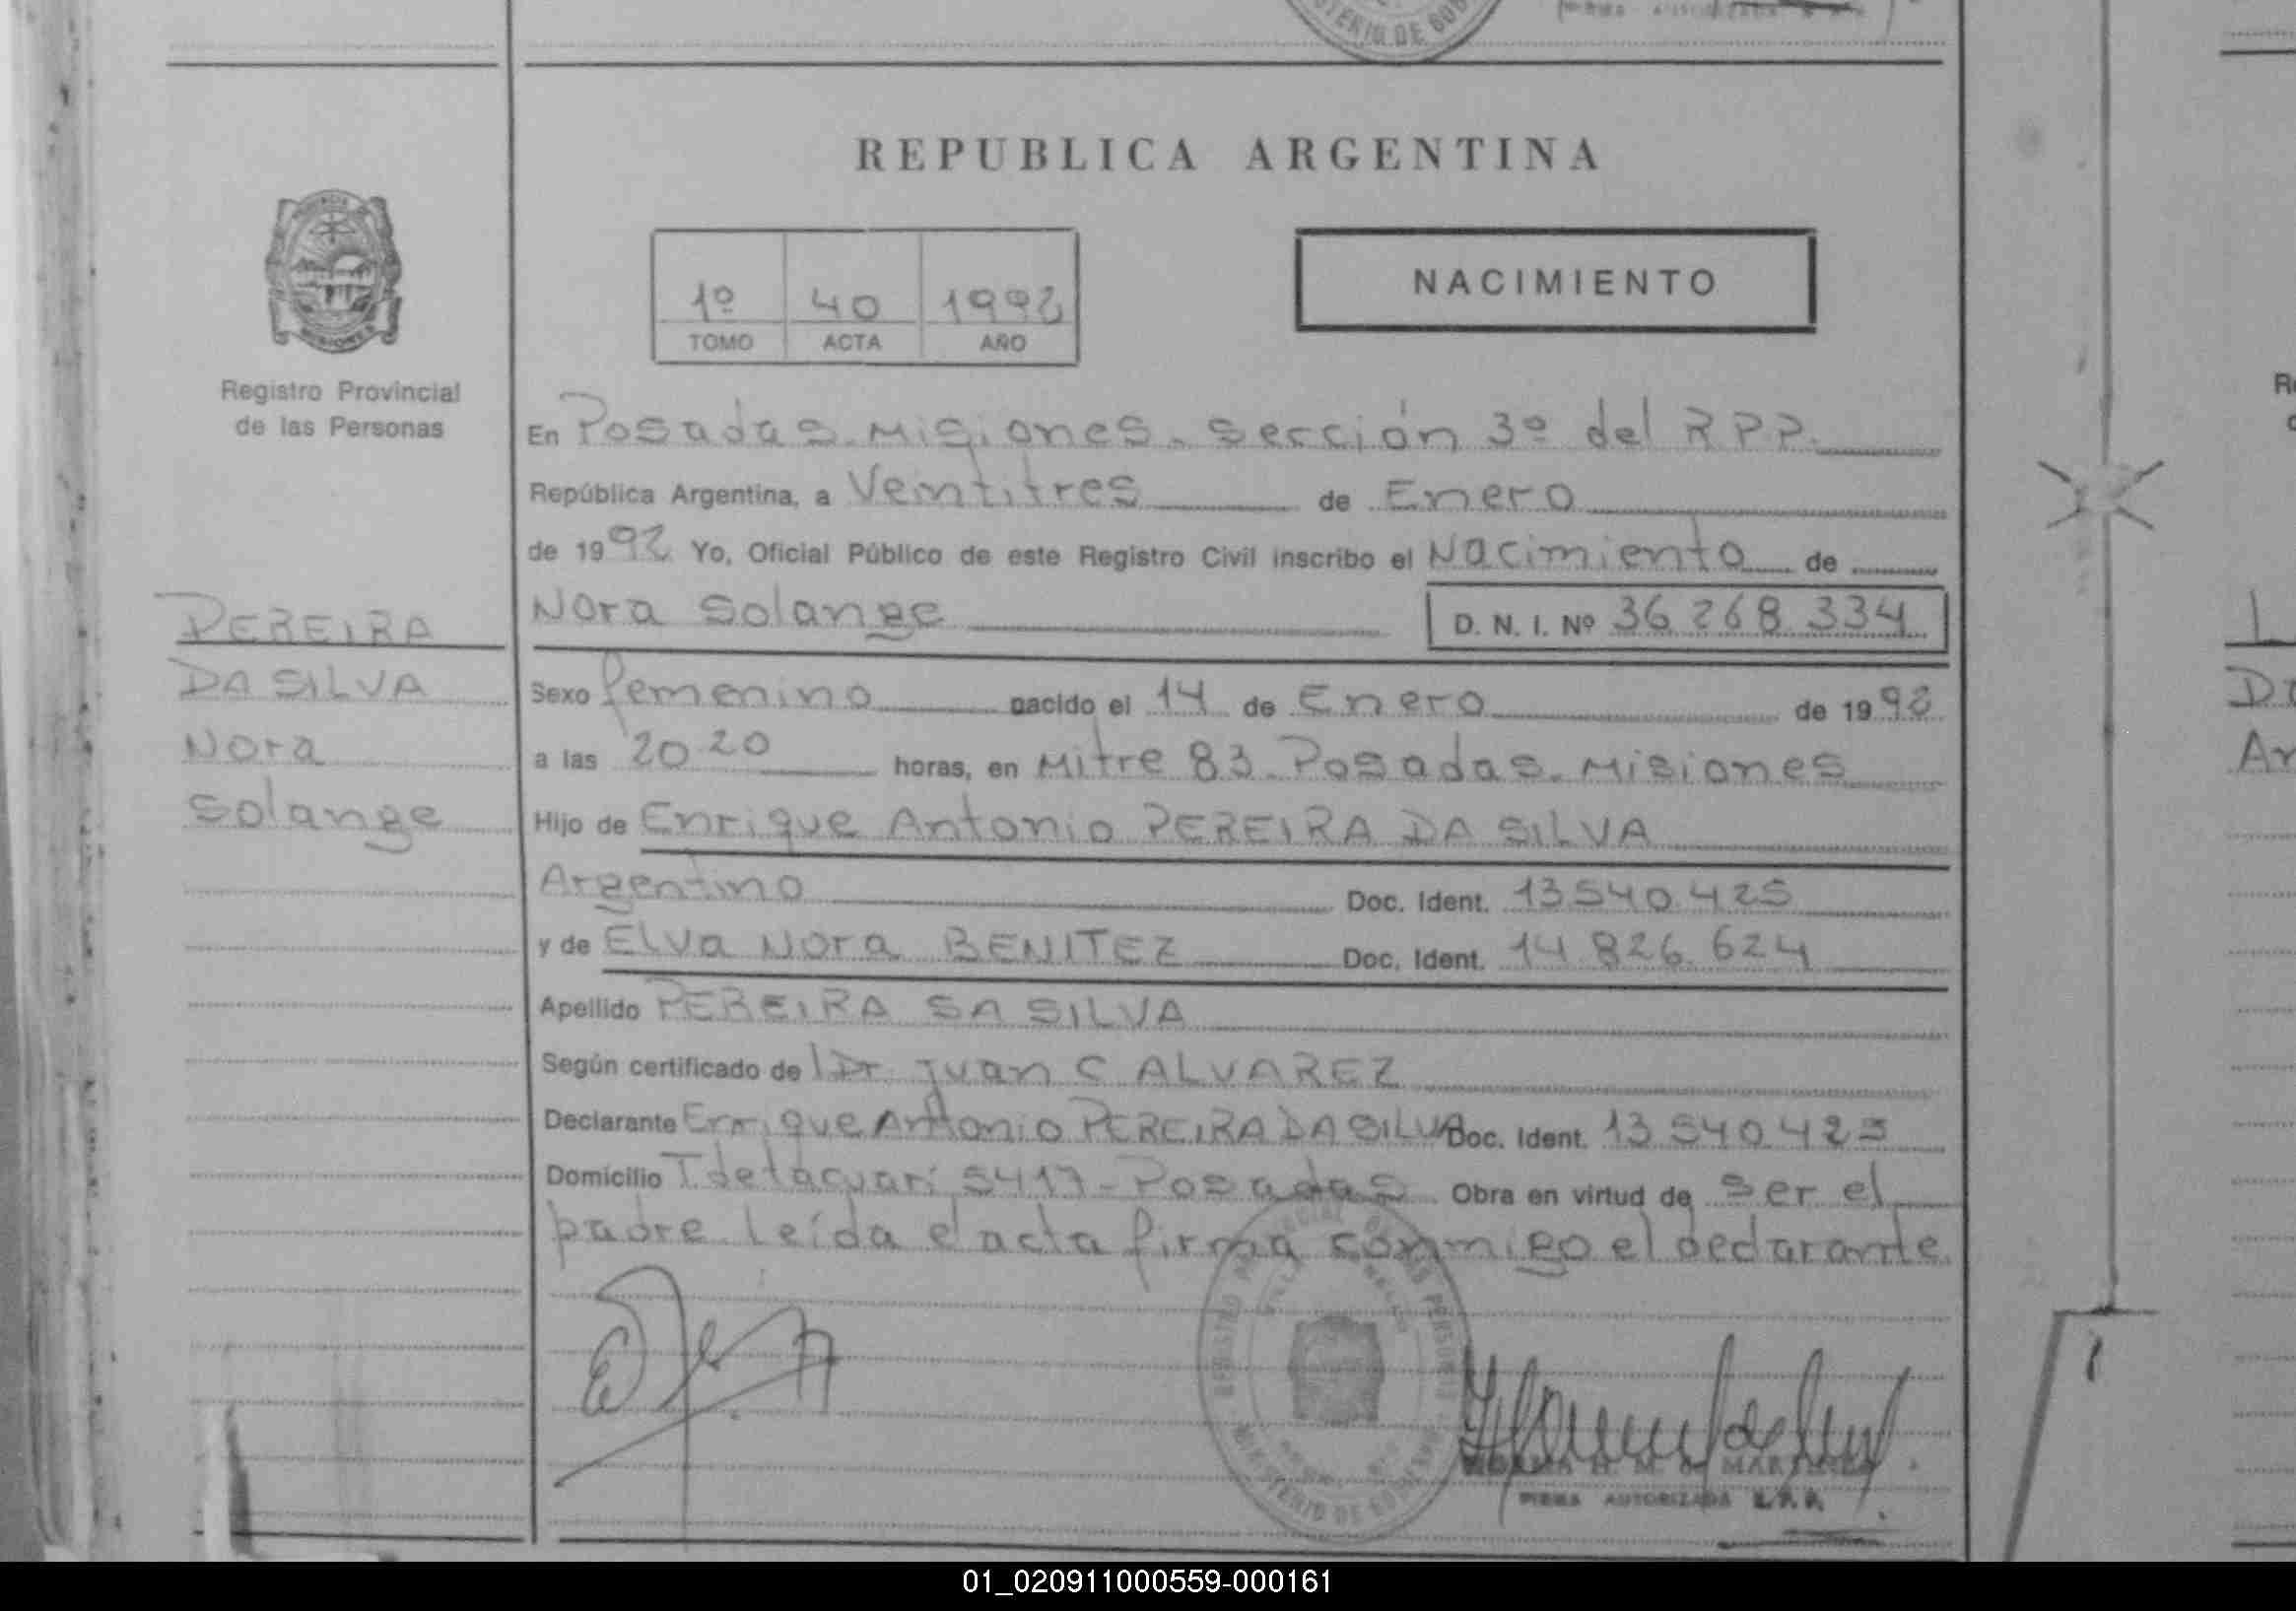 TERIO DE GOB
REPUBLICA ARGENTINA
1º 40 1992
TOMO ACTA AÑO
NACIMIENTO
Registro Provincial
de las Personas
En Posadas. Misiones. Sección 3º del R P P.
República Argentina, a Veintitres de Enero
de 1992 Yo, Oficial Público de este Registro Civil inscribo el Nacimiento de
Nora Solange D. N. I. Nº 36.268.334
PEREIRA
DA SILVA
Nora
Solange
Sexo femenino nacido el 14 de Enero de 1992
a las 20 20 horas, en Mitre 83. Posadas. Misiones
Hijo de Enrique Antonio PEREIRA DA SILVA
Argentino Doc. Ident. 13.540.425
y de Elva Nora BENITEZ Doc. Ident. 14 826.624
Apellido PEREIRA SA SILVA
Según certificado de Dr. Juan C ALVAREZ
Declarante Enrique Antonio PEREIRA DA SILVA Doc. Ident. 13 540.425
Domicilio T de tacuari 5417 - Posadas Obra en virtud de ser el
padre. Leída el acta firma conmigo el declarante.
MINISTERIO DE GOBIERNO
FIRMA AUTORIZADA R.P.P.
01_020911000559-000161